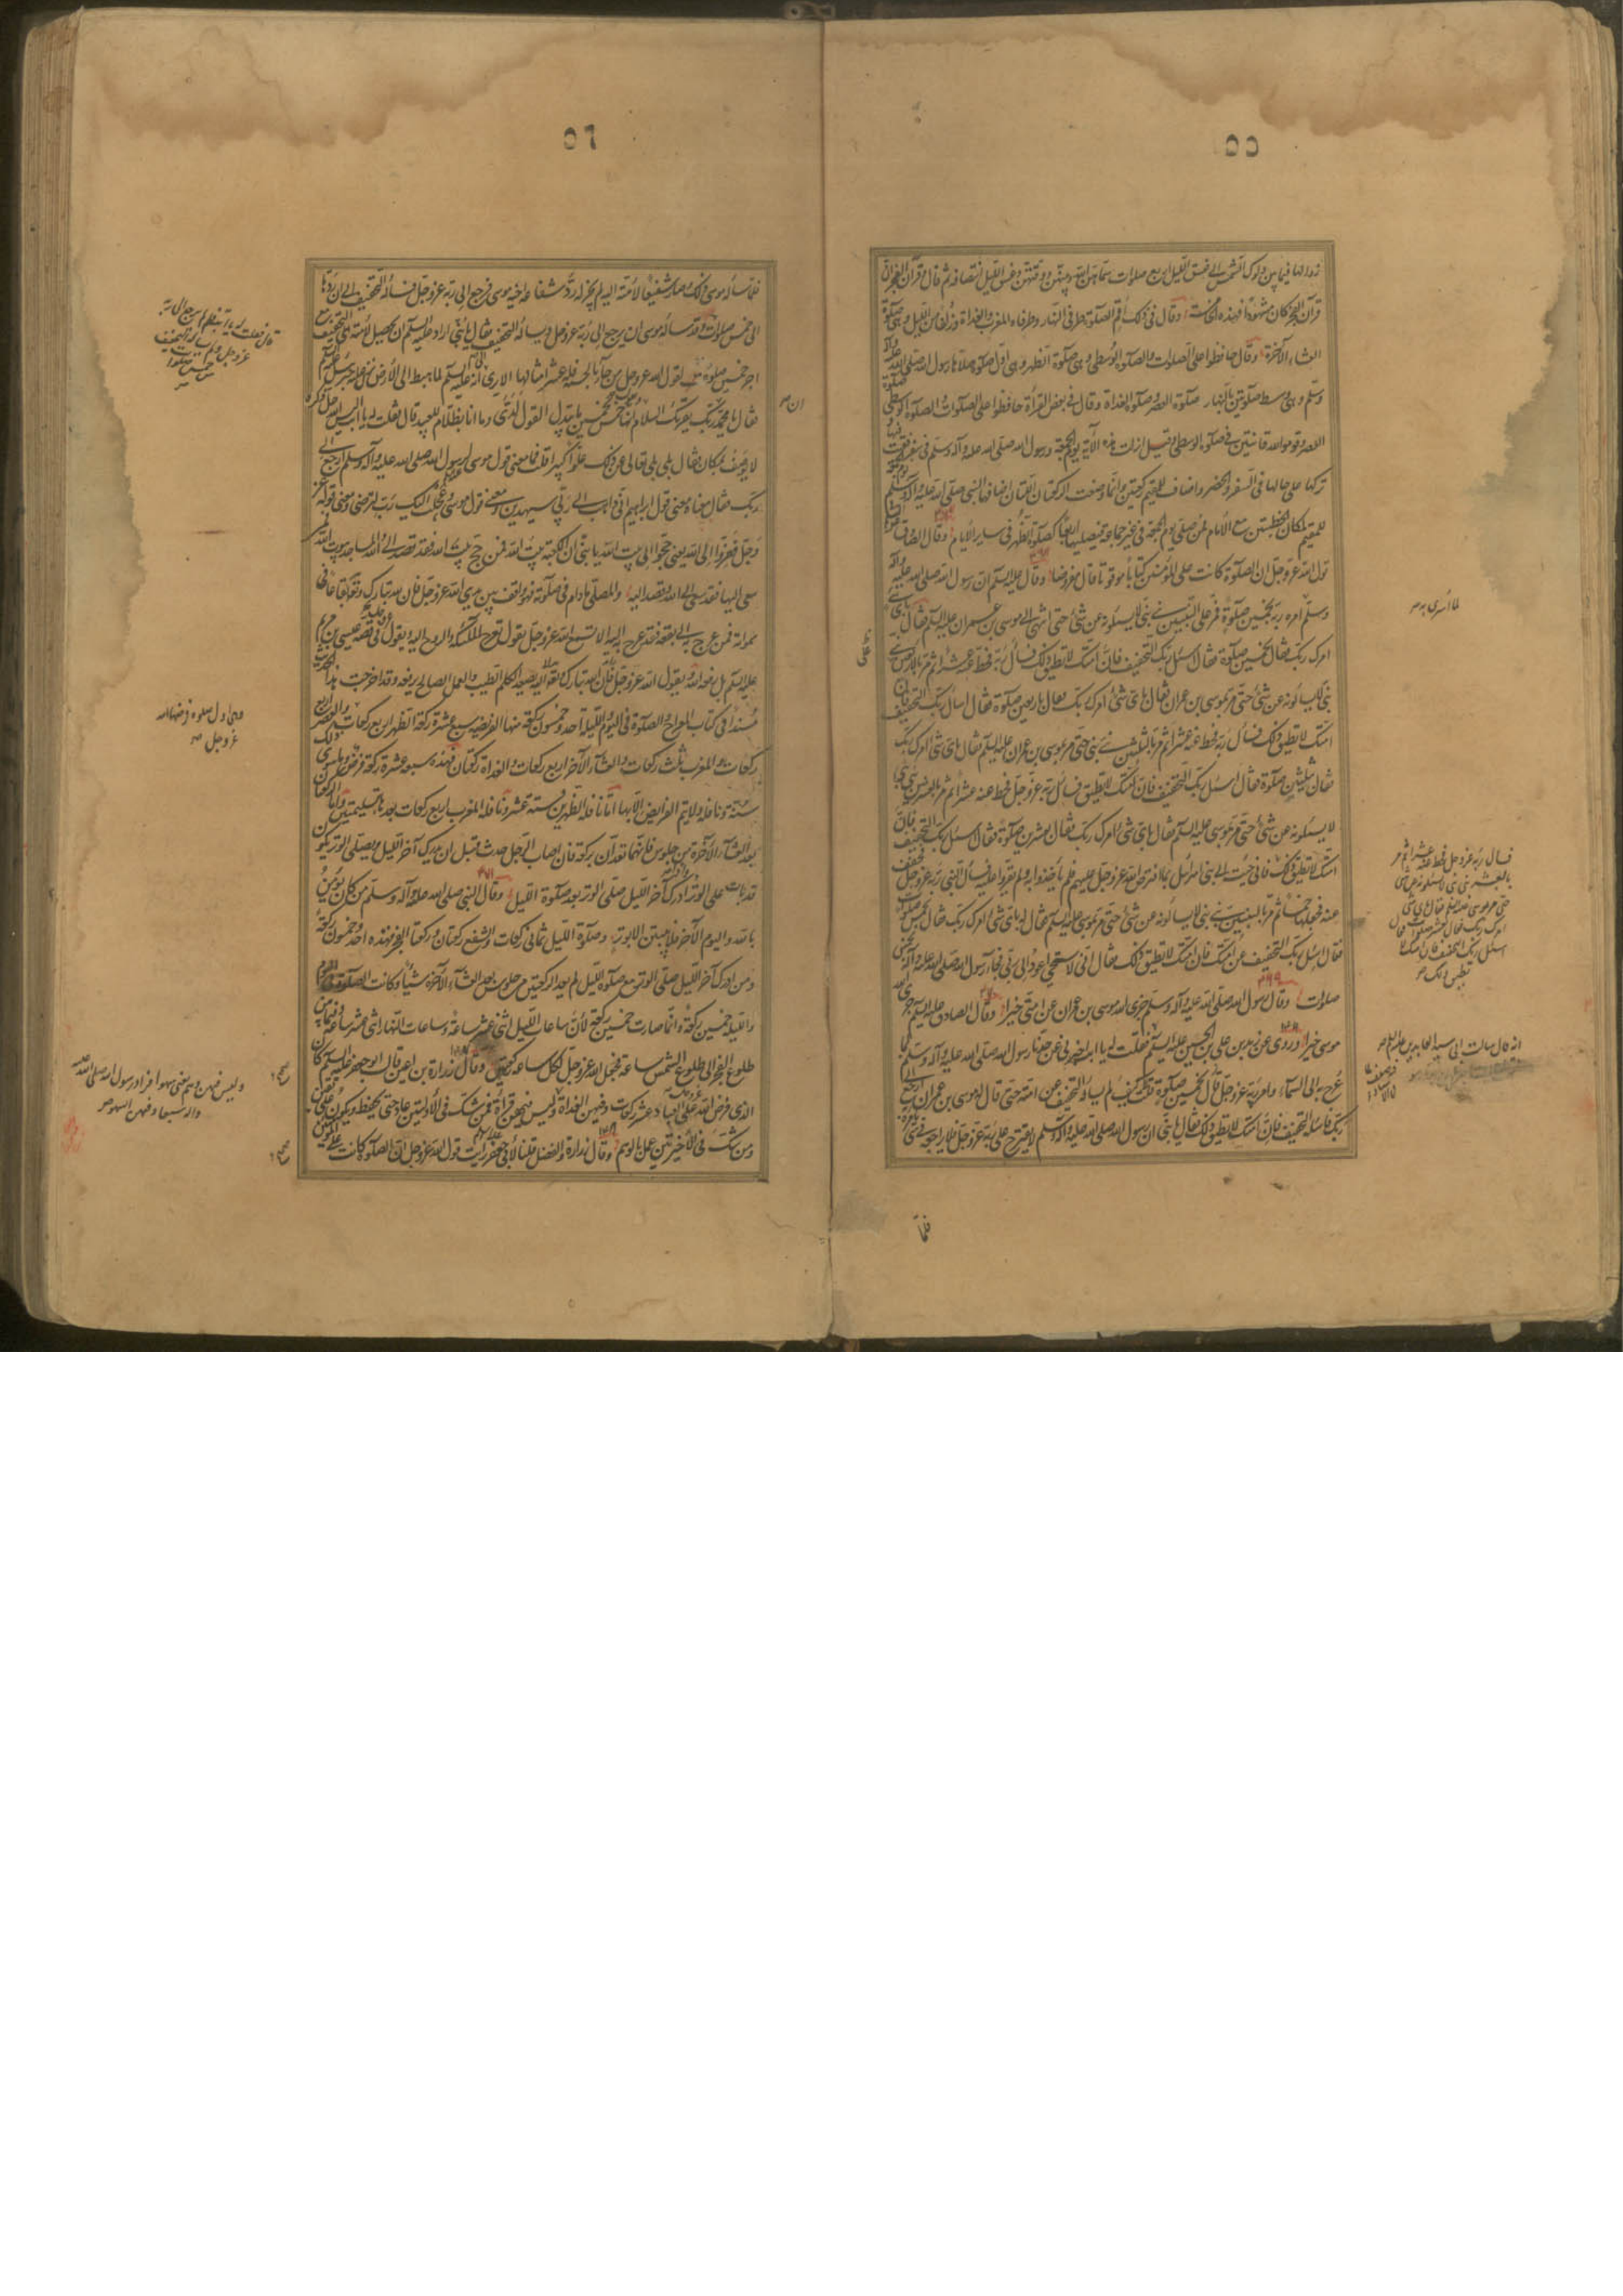 ٥٥
زوالها فيما بين دلوك الشمس الى غسق الليل اربع صلوات سماهن الله وبينهن ووقتهن وغسق الليل انتصافه ثم قال وقرآن الفجر ان
قرآن الفجر كان مشهودا فهذه الخامسة وقال في ذلك اقم الصلوة طرفي النهار وطرفاه المغرب والغداة وزلفا من الليل وهي صلوة
العشاء الآخرة وقال حافظوا على الصلوات والصلوة الوسطى وهي صلوة الظهر وهي اول صلوة صلاها رسول الله صلى الله عليه وآله
وسلم وهي وسط صلوتين بالنهار صلوة الغداة وصلوة العصر وقال في بعض القرأة حافظوا على الصلوات والصلوة الوسطى صلوة
العصر وقوموا لله قانتين في صلوة الوسطى وقيل انزلت هذه الآية يوم الجمعة ورسول الله صلى الله عليه وآله وسلم في سفر فقنت فيها
تركها على حالها في السفر والحضر واضاف للمقيم ركعتين وانما وضعت الركعتان اللتان اضافهما النبي صلى الله عليه وآله وسلم
للمقيم لمكان الخطبتين مع الامام فمن صلى يوم الجمعة في غير جماعة فيصليها اربعا كصلوة الظهر في ساير الايام وقال الصادق
قول الله عز وجل ان الصلوة كانت على المؤمنين كتابا موقوتا قال مفروضا وقال عليه السلم ان رسول الله صلى الله عليه وآله
وسلم امره ربه بخمسين صلوة فمر على النبيين نبي نبي لا يسئلونه عن شئ حتى انتهى الى موسى بن عمران عليه السلم فقال باي شئ
امرك ربك فقال بخمسين صلوة فقال اسئل ربك التخفيف فان امتك لا تطيق ذلك فسأل ربه فحط عنه عشرا ثم مر بالنبيين نبي
نبي لا يسألونه عن شئ حتى مر بموسى بن عمران فقال باي شئ امرك ربك فقال باربعين صلوة فقال اسأل ربك التخفيف فان
امتك لا تطيق ذلك فسأل ربه فحط عنه عشرا ثم مر بالنبيين نبي نبي حتى مر بموسى بن عمران عليه السلم فقال باي شئ امرك ربك
فقال بثلثين صلوة فقال اسئل ربك التخفيف فان امتك لا تطيق فسأل ربه عز وجل فحط عنه عشرا ثم مر بالنبيين نبي نبي
لا يسئلونه عن شئ حتى مر بموسى عليه السلم فقال باي شئ امرك ربك فقال بعشرين صلوة فقال اسئل ربك التخفيف فان
امتك لا تطيق ذلك فاني جئت الى بني اسرائيل بما افترض الله عز وجل عليهم فلم يأخذوا به ولم يقروا عليه فسأل النبي ربه عز وجل فخفف
عنه فجعلها خمسا ثم مر بالنبيين نبي نبي لا يسألونه عن شئ حتى مر بموسى عليه السلم فقال له باي شئ امرك ربك فقال بخمس صلوات
فقال اسئل ربك التخفيف عن امتك فان امتك لا تطيق ذلك فقال اني لاستحيي اعود الى ربي فجاء رسول الله صلى الله عليه وآله بخمس
صلوات وقال رسول الله صلى الله عليه وآله وسلم جزى الله موسى بن عمران عن امتي خيرا وقال الصادق عليه السلم جزى الله
موسى خيرا وروي عن زيد بن علي بن الحسين عليه السلم فقلت له يا ابه اخبرني عن جدنا رسول الله صلى الله عليه وآله وسلم لما
عرج به الى السماء وامره ربه عز وجل بخمسين صلوة كيف لم يسأله التخفيف عن امته حتى قال له موسى بن عمران ارجع الى
ربك فاسئله التخفيف فان امتك لا تطيق ذلك فقال يا بني ان رسول الله صلى الله عليه وآله وسلم لا يقترح على ربه عز وجل فلا يراجعه في شئ
فلما
لما اسرى به صح
فسال ربه عز وجل فحط عنه عشرا ثم مر
بالنبيين نبي نبي لا يسئلونه عن شئ
حتى مر بموسى عليه السلم فقال باي شئ
امرك ربك فقال بعشر صلوات فقال
اسئل ربك التخفيف فان امتك لا
تطيق ذلك صح
انه قال سالت ابي سيد العابدين عليه السلم صح
٥٦
فلما سأله موسى ذلك وصار شفيعا لامته اليه لم يجز له رد شفاعة اخيه موسى فرجع الى ربه عز وجل فسأله التخفيف الى ان ردها
الى خمس صلوات وقد سأله موسى ان يرجع الى ربه عز وجل ويسأله التخفيف فقال يا بني اراد عليه السلم ان يحصل لامته التخفيف مع
اجر خمسين صلوة لقول الله عز وجل من جاء بالحسنة فله عشر امثالها الا ترى انه عليه السلم لما هبط الى الارض نزل عليه جبرئيل عليه السلم
فقال يا محمد ان ربك يقرئك السلام ويقول انها خمس بخمسين ما يبدل القول لدي وما انا بظلام للعبيد قال فقلت له يا ابه اليس الله جل ذكره
لا يوصف بمكان فقال بلى تعالى عن ذلك علوا كبيرا قلت فما معنى قول موسى لرسول الله صلى الله عليه وآله وسلم ارجع الى
ربك فقال معناه معنى قول ابراهيم اني ذاهب الى ربي سيهدين ومعنى قول موسى وعجلت اليك رب لترضى ومعنى قوله عز
وجل ففروا الى الله يعني حجوا الى بيت الله يا بني ان الكعبة بيت الله فمن حج بيت الله فقد قصد الى الله والمساجد بيوت الله فمن
سعى اليها فقد سعى الى الله وقصد اليه والمصلي ما دام في صلوته فهو واقف بين يدي الله عز وجل فان لله تبارك وتعالى بقاعا في
سمواته فمن عرج به الى بقعة منها فقد عرج به اليه الا تسمع الله عز وجل يقول تعرج الملئكة والروح اليه ويقول في قصة عيسى بن مريم
عليه السلم بل رفعه الله اليه ويقول الله عز وجل اليه يصعد الكلم الطيب والعمل الصالح يرفعه وقد اخرجت هذا الحديث
مسندا في كتاب المعراج والصلوة في اليوم والليلة احد وخمسون ركعة منها الفريضة سبع عشرة ركعة الظهر اربع ركعات والعصر اربع
ركعات والمغرب ثلث ركعات والعشاء الآخرة اربع ركعات والغداة ركعتان فهذه سبعة عشرة ركعة فرض وما سوى ذلك
سنة ونافلة ولا يتم الفرايض الا بها اما نافلة الظهرين فستة عشر ونافلة المغرب اربع ركعات بعدها بتسليمتين واما الركعتان
بعد العشاء الآخرة من جلوس فانهما تعدان بركعة فان اصاب الرجل حدث قبل ان يدرك آخر الليل ويصلي الوتر يكون
قد بات على الوتر واذا ادرك آخر الليل صلى الوتر بعد صلوة الليل وقال النبي صلى الله عليه وآله وسلم من كان يؤمن
بالله واليوم الآخر فلا يبيتن الا بوتر وصلوة الليل ثماني ركعات والشفع ركعتان وركعتا الفجر فهذه احد وخمسون ركعة
ومن ادرك آخر الليل صلى الوتر مع صلوة الليل لم يعد الركعتين من جلوس بعد العشاء الآخرة شيئا وكانت الصلوة في اليوم
والليلة خمسين ركعة وانما صارت خمسين ركعة لان ساعات الليل اثنتى عشرة ساعة وساعات النهار اثنى عشرة ساعة وفيما بين
طلوع الفجر الى طلوع الشمس ساعة فجعل الله عز وجل لكل ساعة ركعتين وقال زرارة بن اعين قال ابو جعفر عليه السلم كان
الذي فرض الله على العباد عشر ركعات وفيهن القراءة وليس فيهن وهم فمن شك في الاولتين اعاد حتى يحفظ ويكون على يقين
ومن شك في الاخيرتين عمل بالوهم وقال زرارة والفضيل قلنا لابي جعفر ارايت قول الله عز وجل ان الصلوة كانت على المؤمنين
ان صح
عز وجل ولم يسأله التخفيف
وهي اول صلوة فرضها الله
عز وجل صح
وليس فيهن وهم يعني سهوا فزاد رسول الله صلى الله عليه
وآله سبعا وفيهن السهو صح